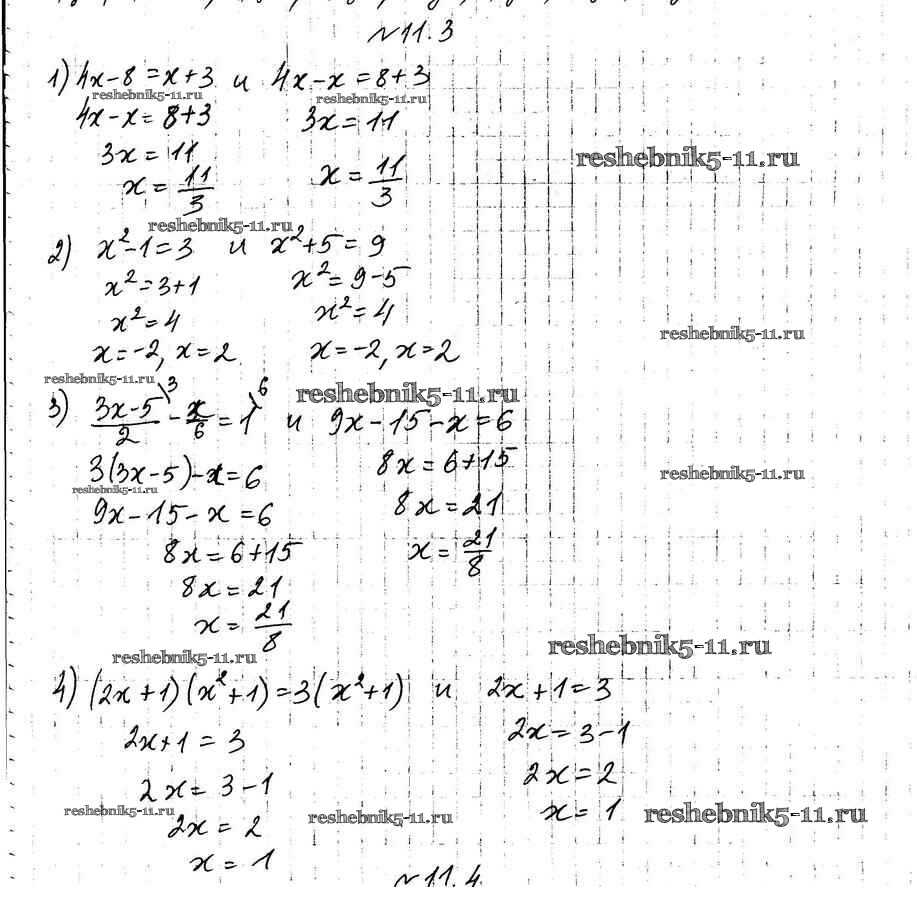 №11.3
1) 4x-8=x+3 и 4x-x=8+3
reshebnik5-11.ru reshebnik5-11.ru
4x-x=8+3 3x=11
3x=11
reshebnik5-11.ru
x=11/3 x=11/3
reshebnik5-11.ru
2) x²-1=3 и x²+5=9
x²=3+1 x²=9-5
x²=4 x²=4
reshebnik5-11.ru
x=-2, x=2 x=-2, x=2
reshebnik5-11.ru reshebnik5-11.ru
3) (3x-5)/2 \3 - x/6 = 1 \6 и 9x-15-x=6
3(3x-5)-x=6 8x=6+15
reshebnik5-11.ru reshebnik5-11.ru
9x-15-x=6 8x=21
8x=6+15 x=21/8
8x=21
x=21/8
reshebnik5-11.ru reshebnik5-11.ru
4) (2x+1)(x²+1)=3(x²+1) и 2x+1=3
2x+1=3 2x=3-1
2x=3-1 2x=2
reshebnik5-11.ru reshebnik5-11.ru x=1 reshebnik5-11.ru
2x=2
x=1
№11.4